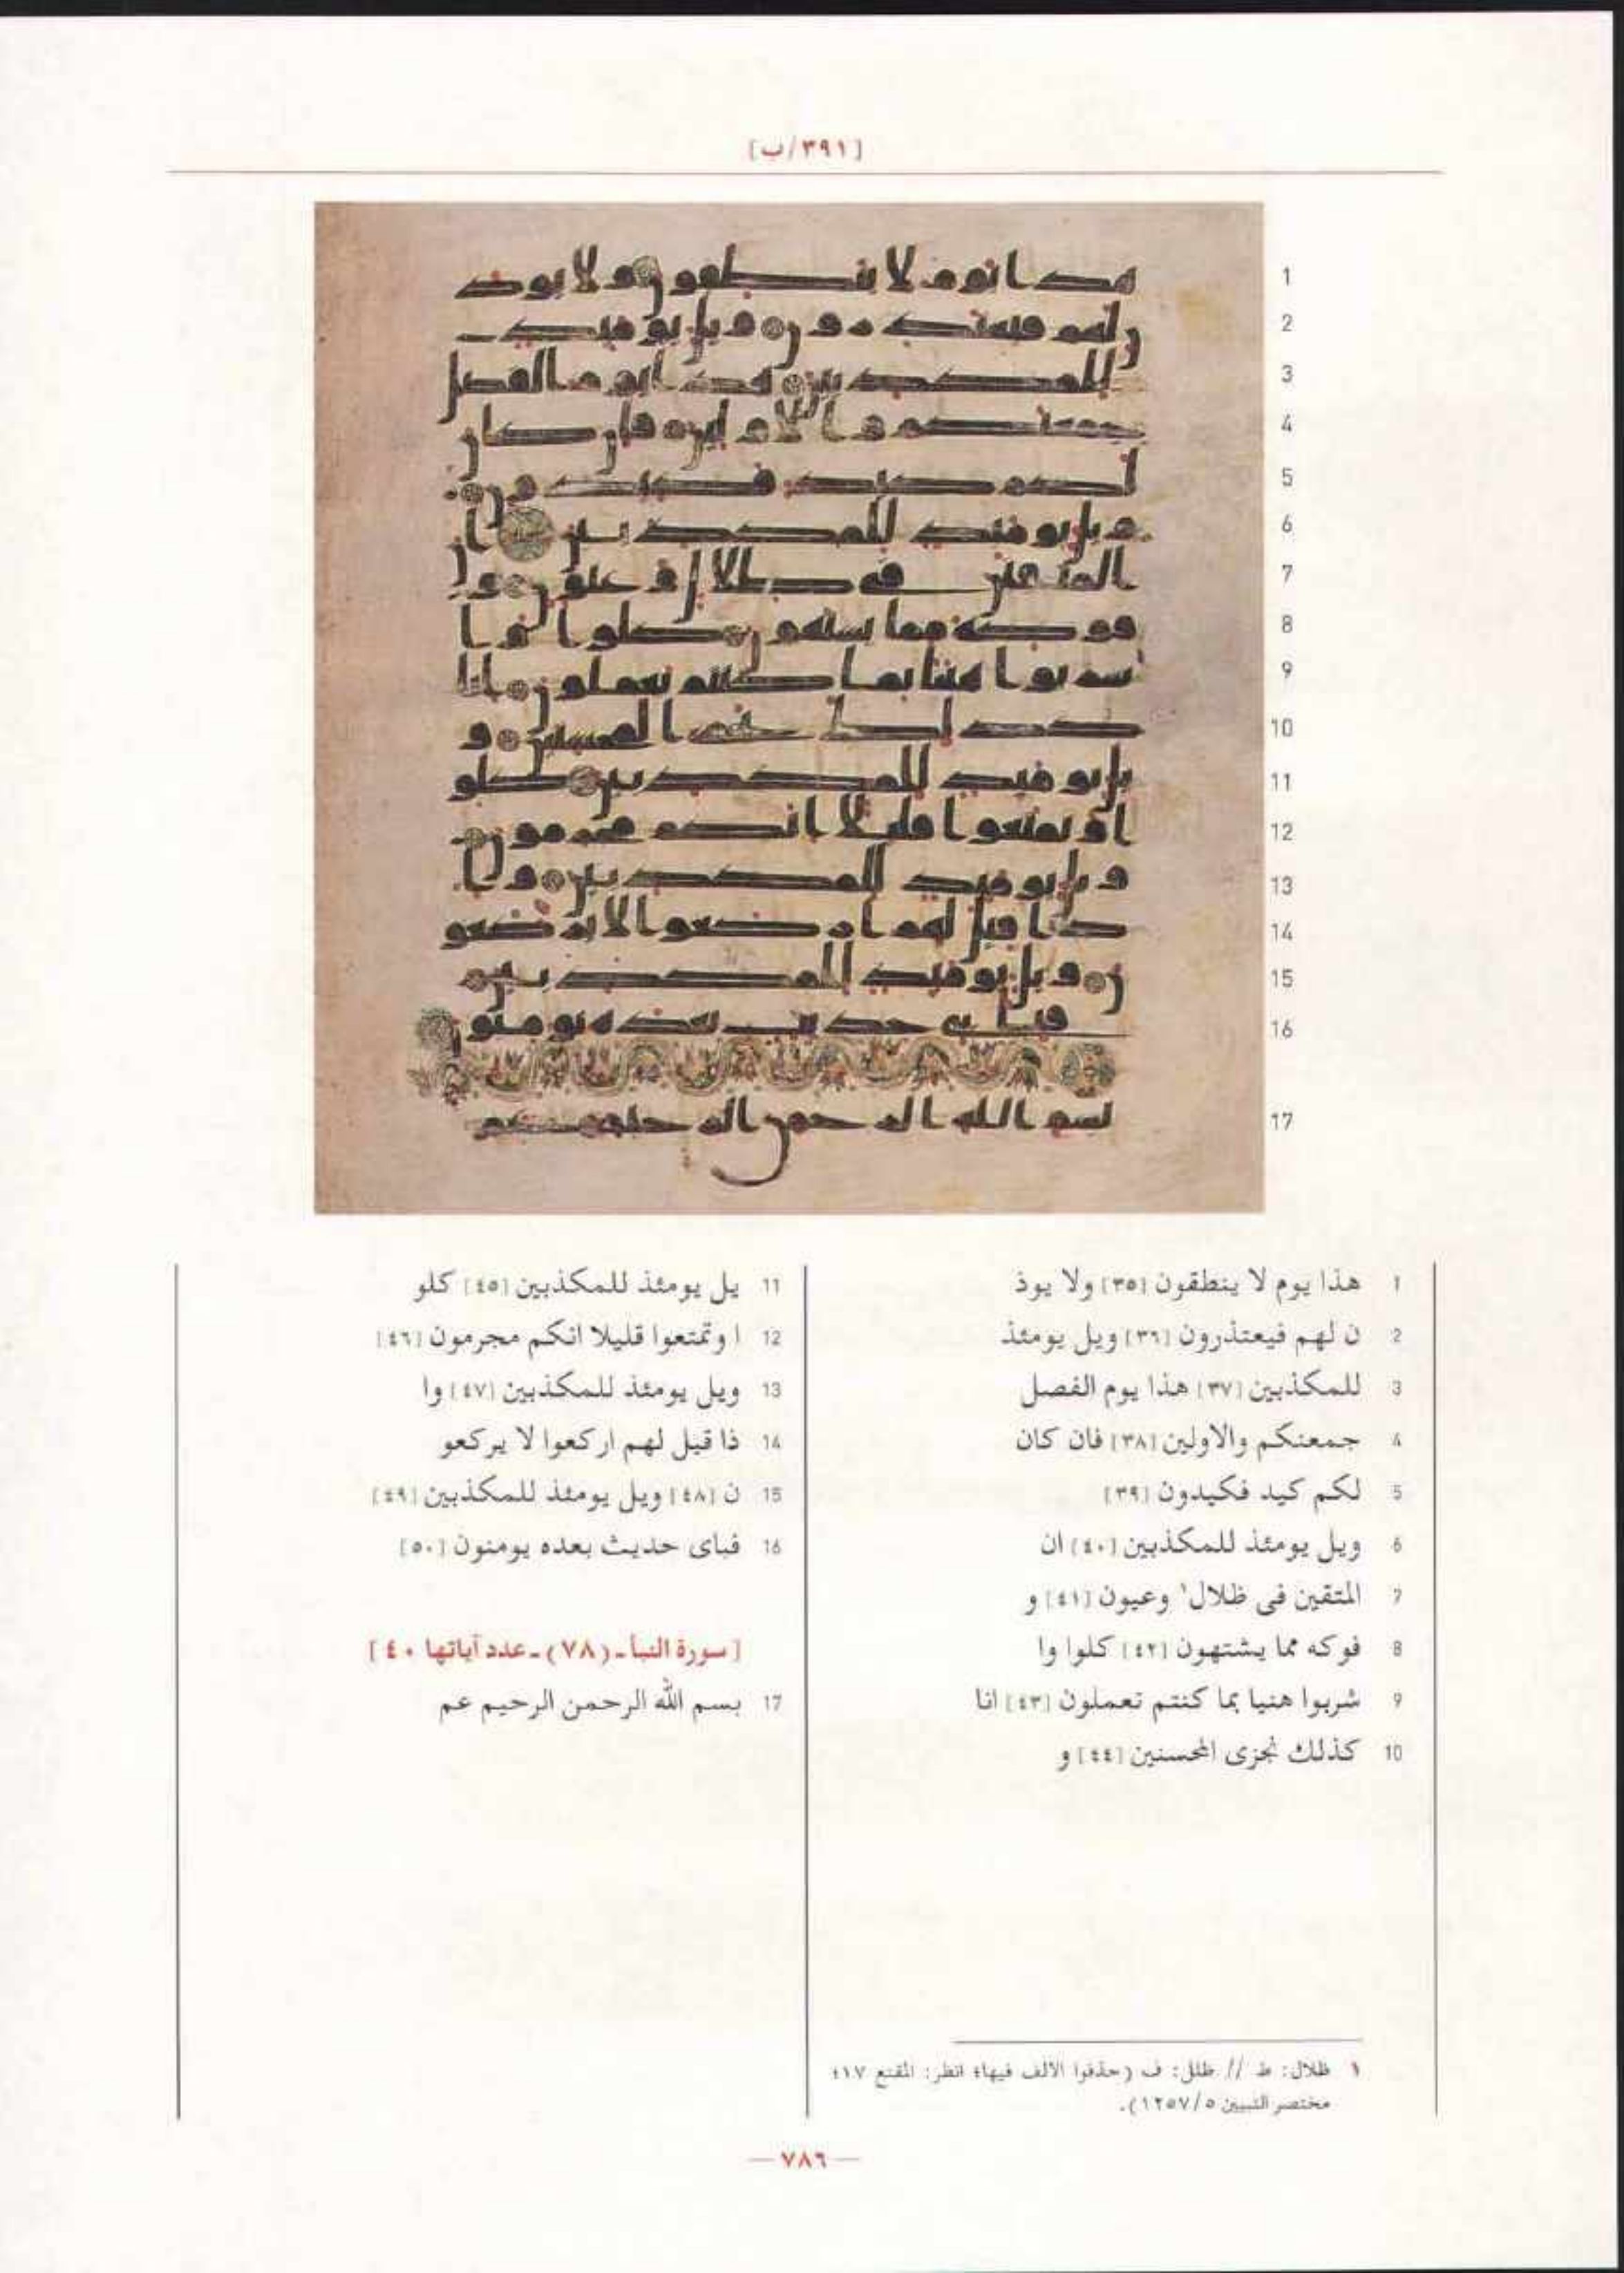 [٣٩١/ب]
1 هذا يوم لا ينطقون [٣٥] ولا يوذ
2 ن لهم فيعتذرون [٣٦] ويل يومئذ
3 للمكذبين [٣٧] هذا يوم الفصل
4 جمعنكم والاولين [٣٨] فان كان
5 لكم كيد فكيدون [٣٩]
6 ويل يومئذ للمكذبين [٤٠] ان
7 المتقين فى ظلال١ وعيون [٤١] و
8 فوكه مما يشتهون [٤٢] كلوا وا
9 شربوا هنيا بما كنتم تعملون [٤٣] انا
10 كذلك نجزى المحسنين [٤٤] و
11 يل يومئذ للمكذبين [٤٥] كلو
12 ا وتمتعوا قليلا انكم مجرمون [٤٦]
13 ويل يومئذ للمكذبين [٤٧] وا
14 ذا قيل لهم اركعوا لا يركعو
15 ن [٤٨] ويل يومئذ للمكذبين [٤٩]
16 فباى حديث بعده يومنون [٥٠]
[سورة النبأ ـ (٧٨) ـ عدد آياتها ٤٠]
17 بسم الله الرحمن الرحيم عم
١ ظلال: ط // ظلل: ف (حذفوا الألف فيها؛ انظر: المقنع ١٧؛
مختصر التبيين ١٢٥٧/٥).
— ٧٨٦ —